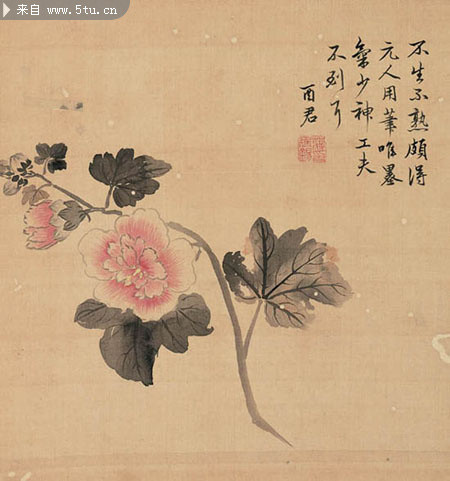 来自 www.5tu.cn
不生不熟頗得
元人用筆唯墨
氣少神工夫
不到了
酉君